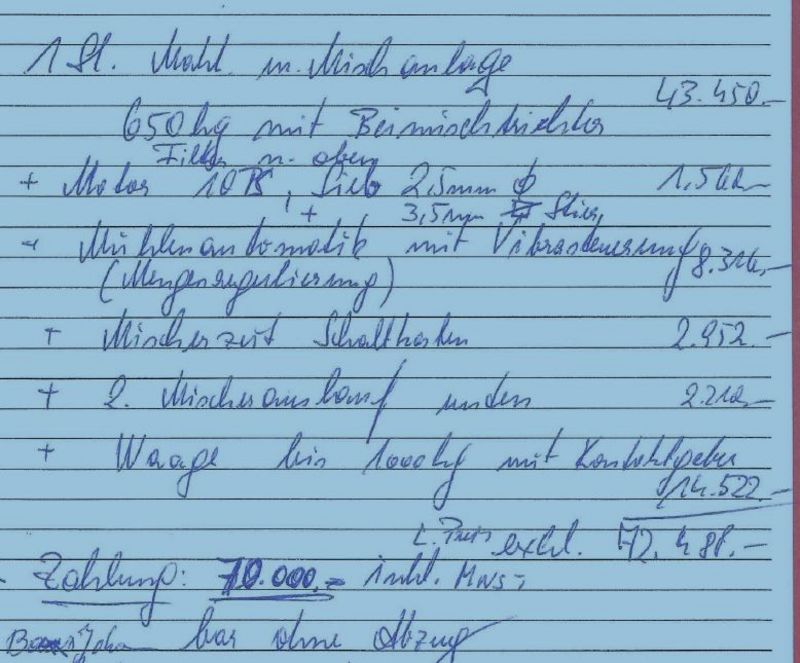 1 St. Mahl. u. Mischanlage
43.450.-
650 kg mit Beimischtrichter
Filter n. oben
+ Motor 10 PS, Sieb 2,5mm Ø
+ 3,5mm
+ Mühlenautomatik mit Vibrasteuerung 8.316.-
(Mengenregulierung)
+ Mischerzeit Schaltkasten 2.952.-
+ 2. Mischerauslauf unden
+ Waage bis 1000 kg mit Kontaktgeber
14.522.-
L. Preis exkl.
- Zahlung: 70.000.- inkl. MWST
bar ohne Abzug